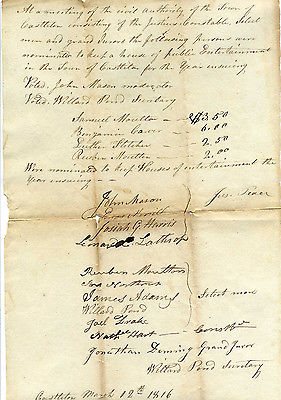 At a meeting of the civil authority of the Town of
Castleton consisting of the Justices Constable, Select
men and grand Jurors the following persons were
nominated to keep a house of public Entertainment
in the Town of Castleton for the Year ensuing
Voted. John Mason moderator
Voted. Willard Pond Secretary
Samuel Moulton — $3.50
Benjamin Carver — 6.00
Luther Fletcher — 2.50
Reuben Moulton — 2.00
Were nominated to keep Houses of entertainment the
Year ensuing
John Mason
Josiah G Harris
Leonard Lathrop
Jus. Peace
Reuben Moulton
James Adams
Willard Pond
Joel Drake
Select men
Hart Const
Jonathan Deming Grand Juror
Willard Pond Secretary
Castleton March 12th 1816